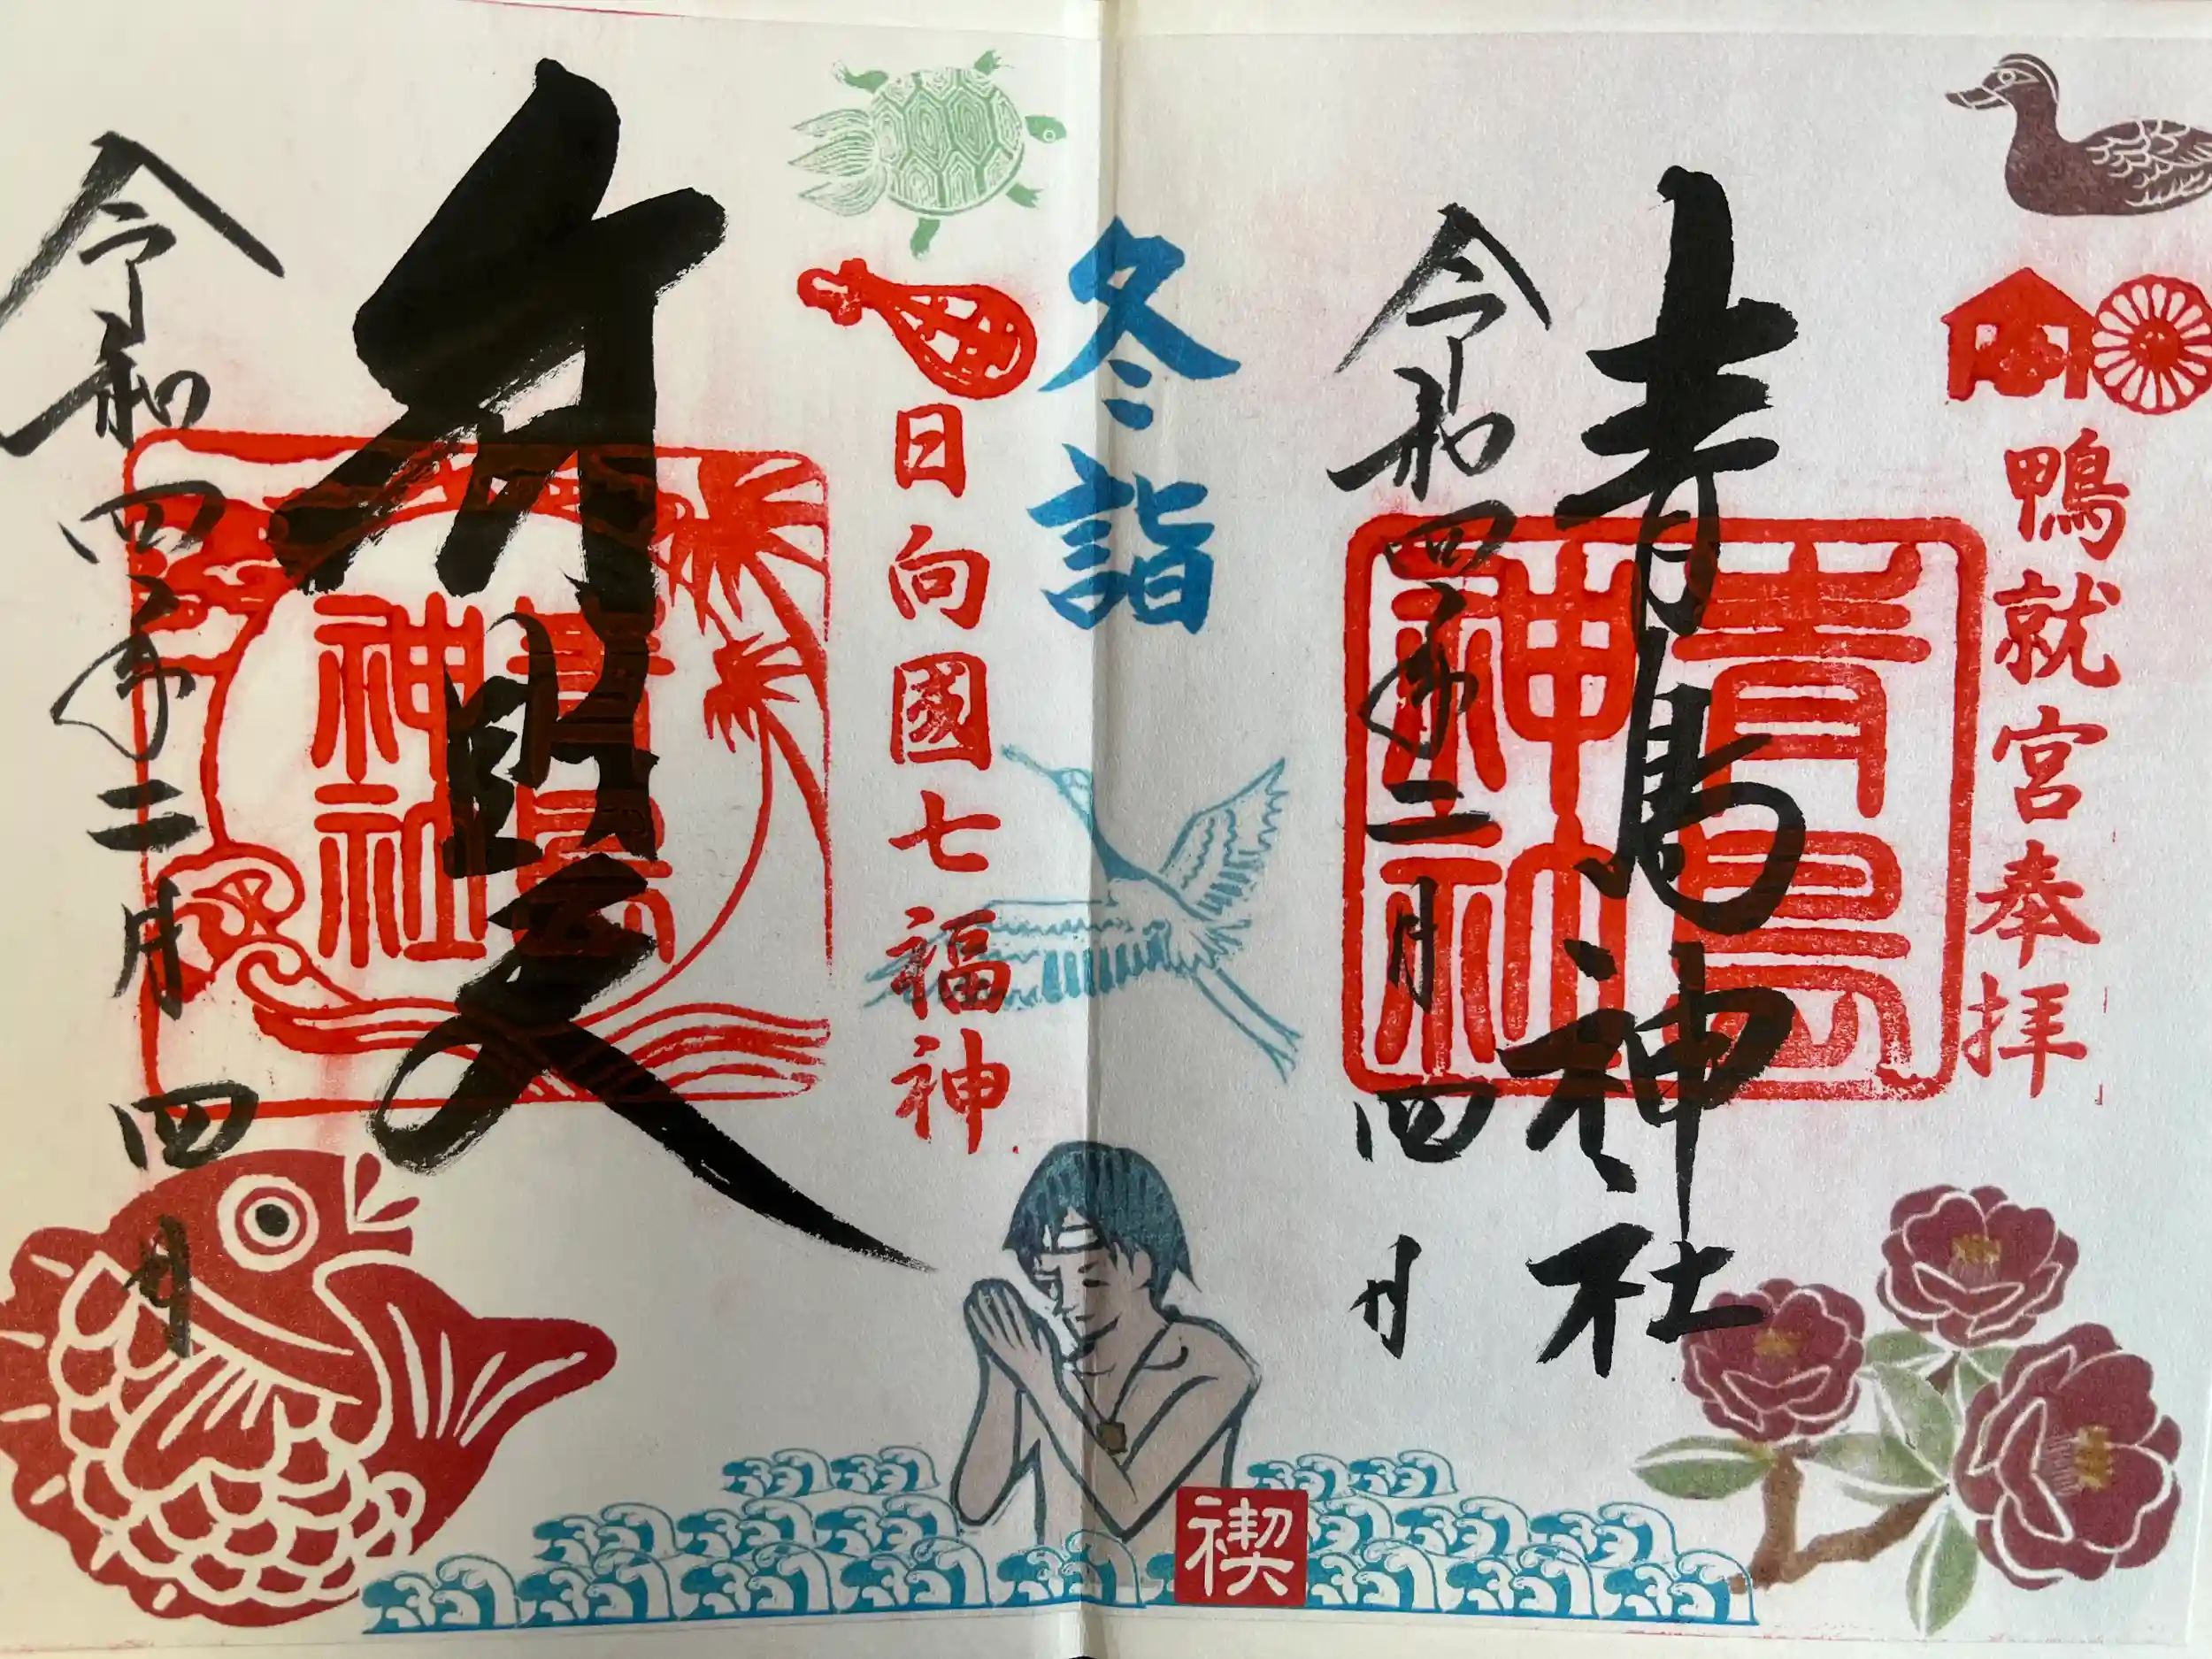 鴨就宮奉拝
青島神社
青島
神社
令和四年二月四日
冬詣
禊
日向國七福神
弁財天
青島
神社
令和四年二月四日